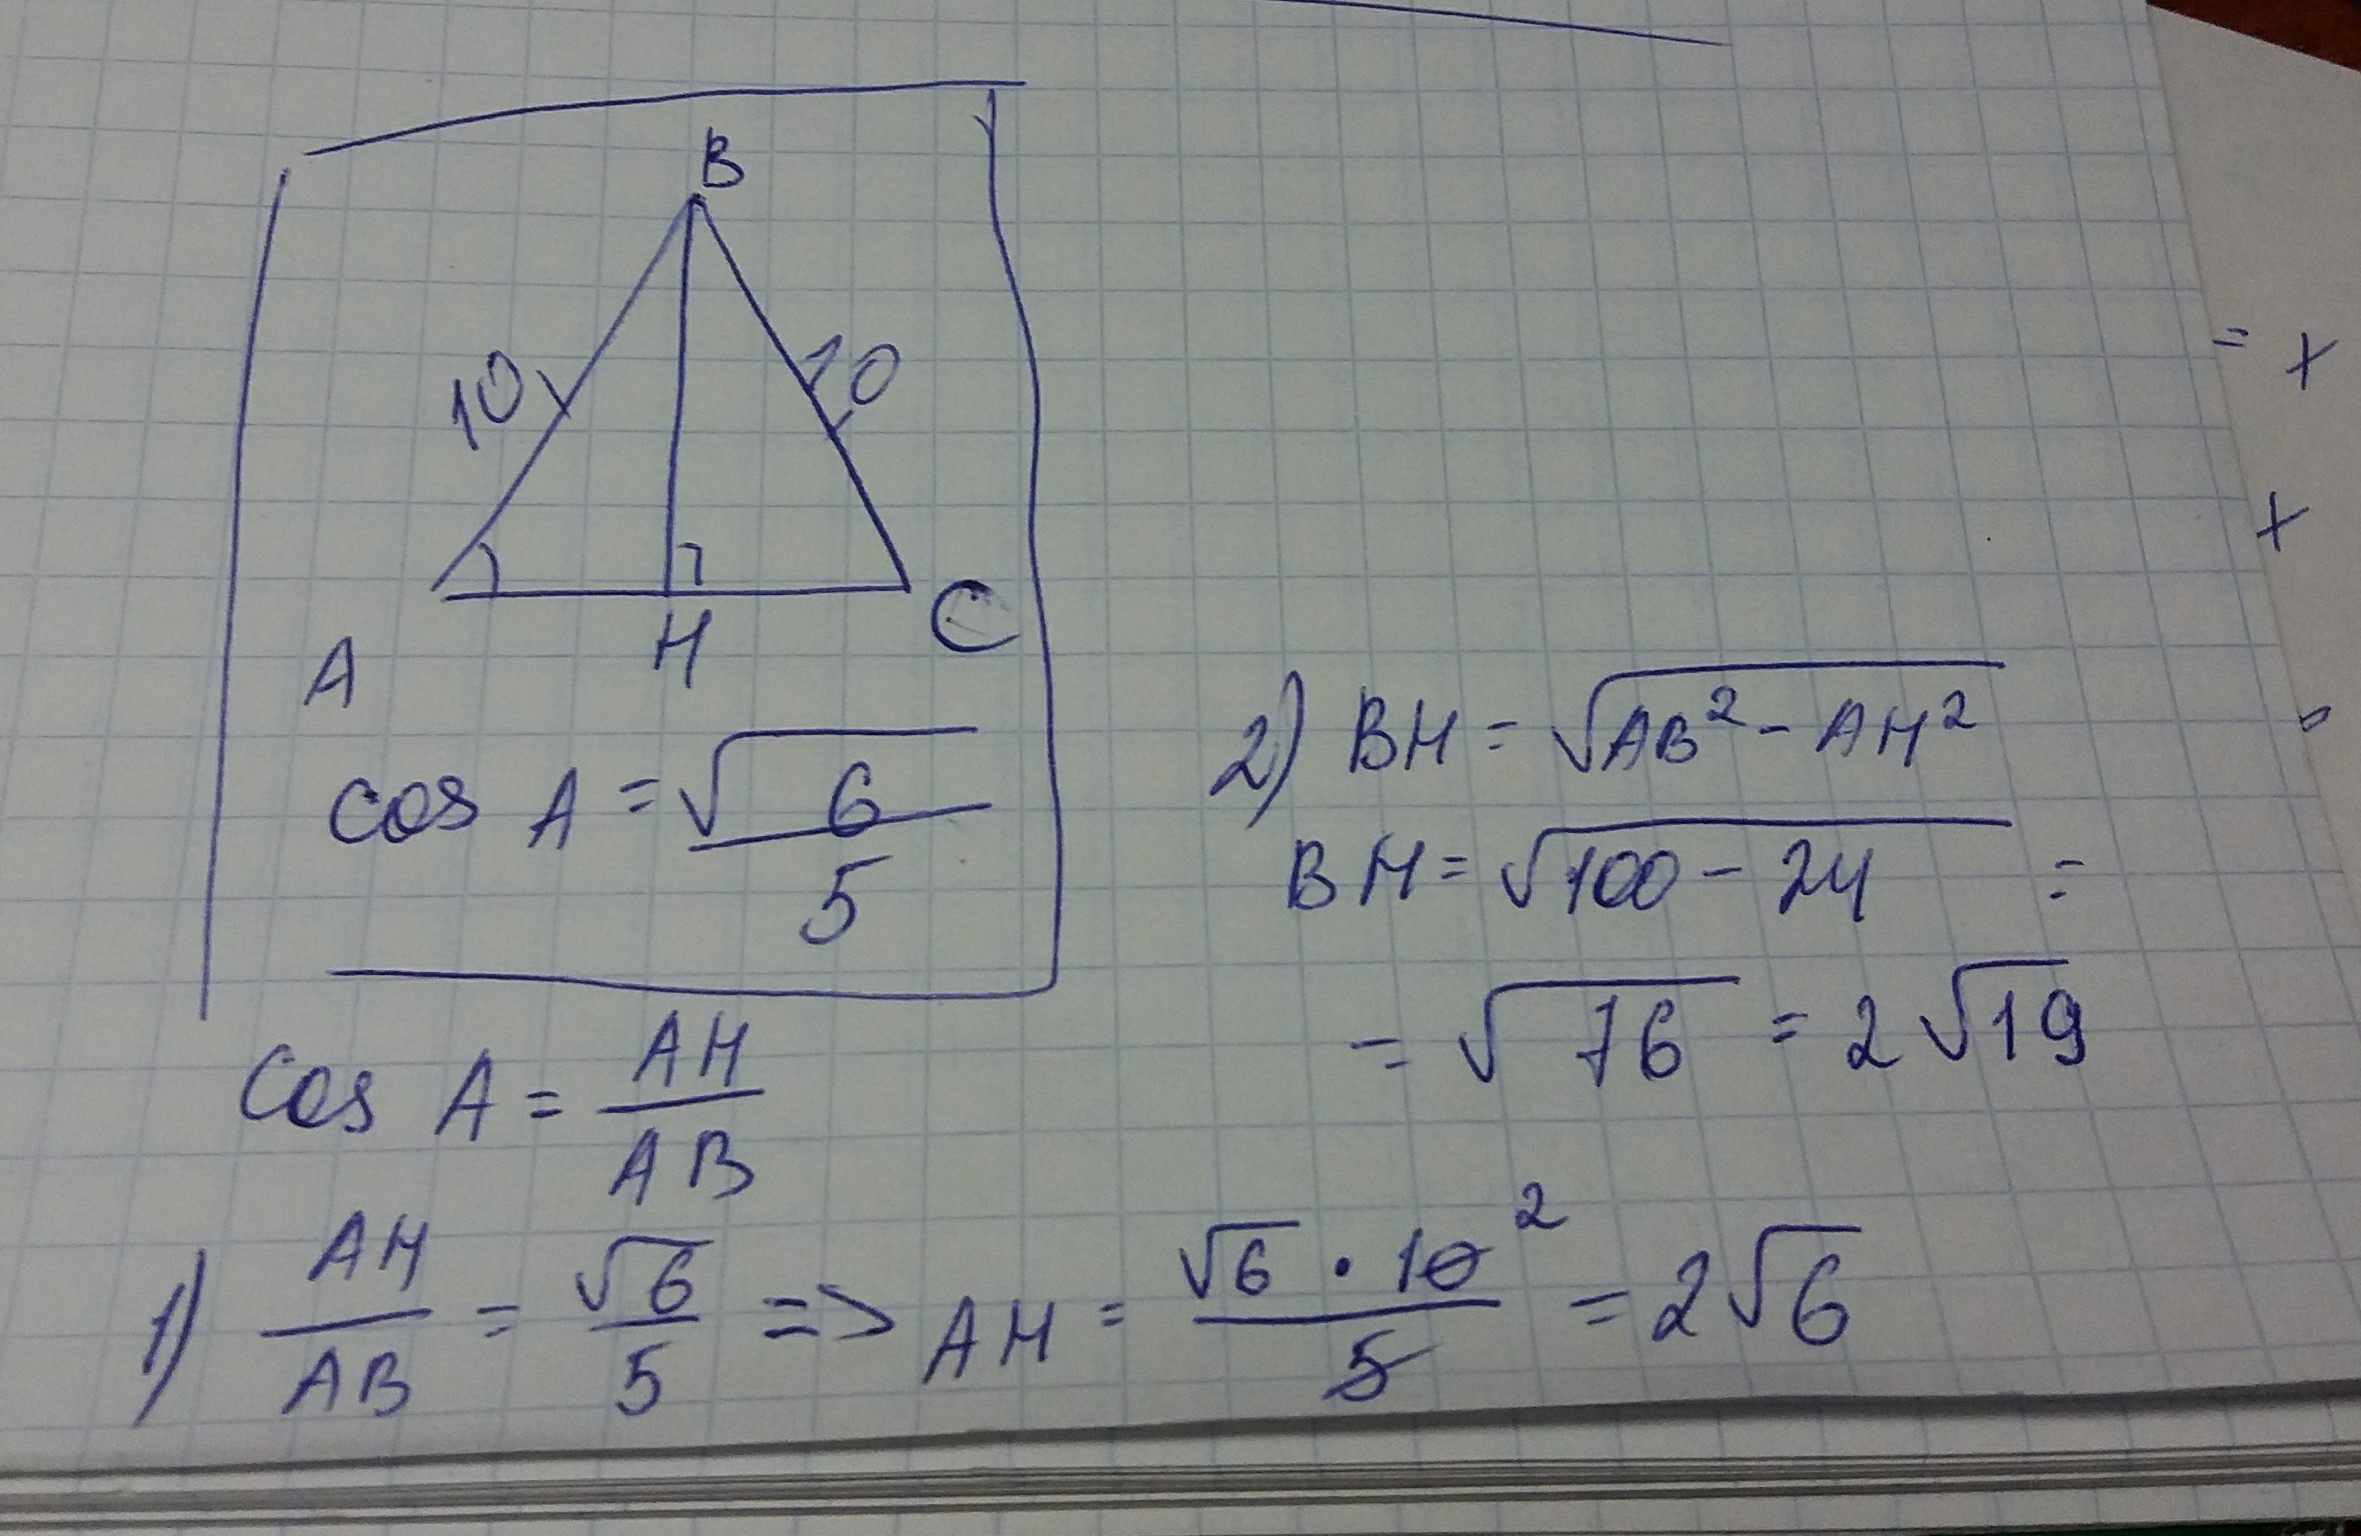 B
10
10
A
H
C
cos A = √6/5
cos A = AH/AB
1) AH/AB = √6/5 => AH = √6 · 10²/5 = 2√6
2) BH = √AB² - AH²
BH = √100 - 24 =
= √76 = 2√19
= x
x